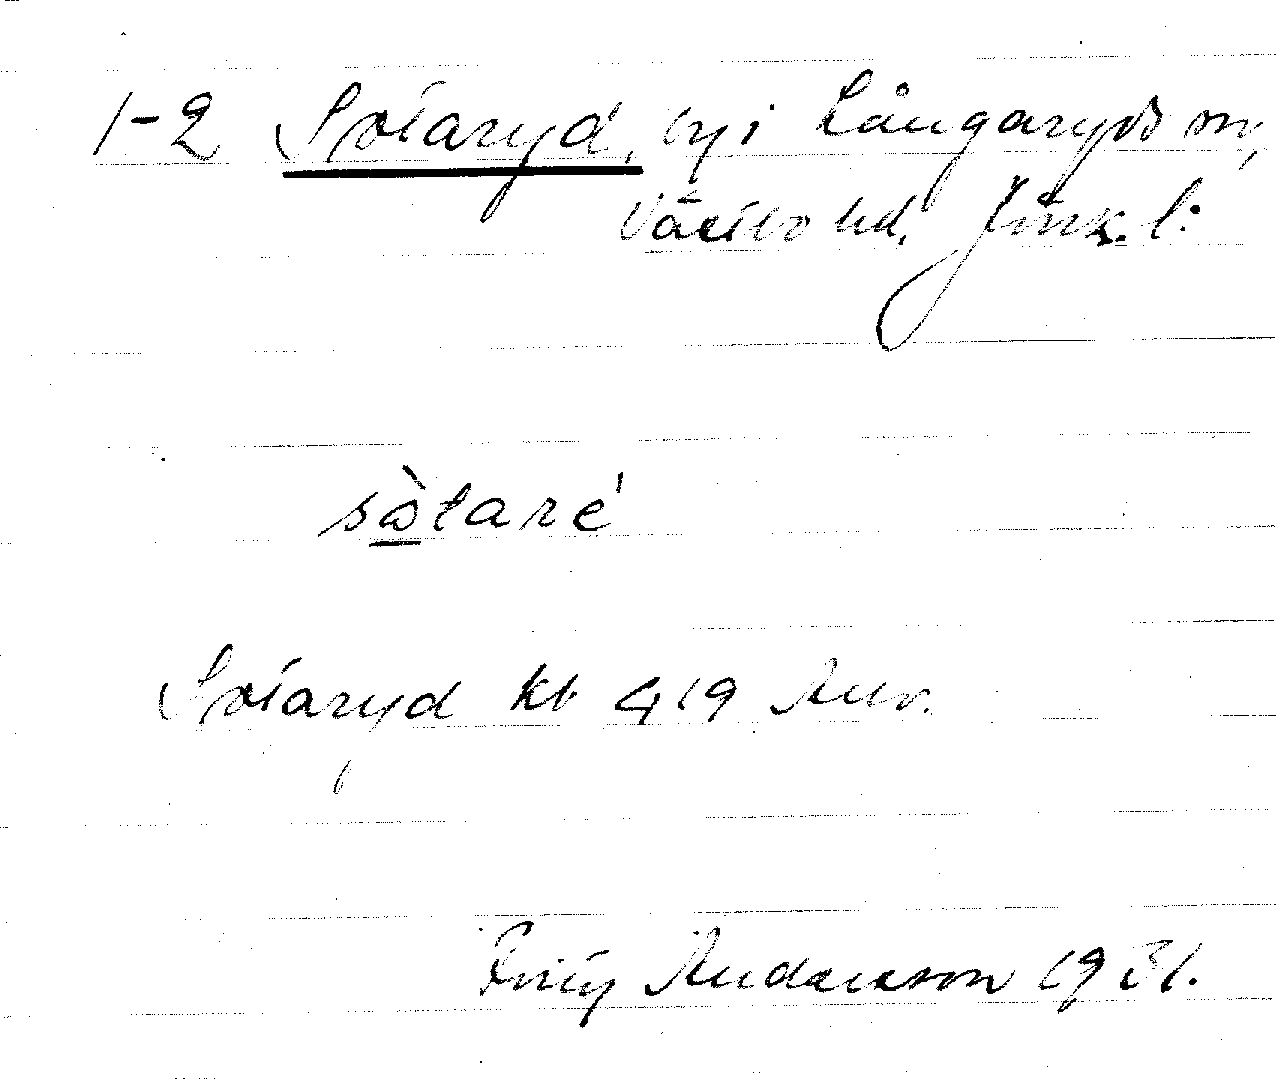 1-2 Sotaryd, by i Långaryds sn,
Västbo hd, Jönk. l.
sὼtaré
Sotaryd kb 419 Anv.
Fritz Andersson 1931.